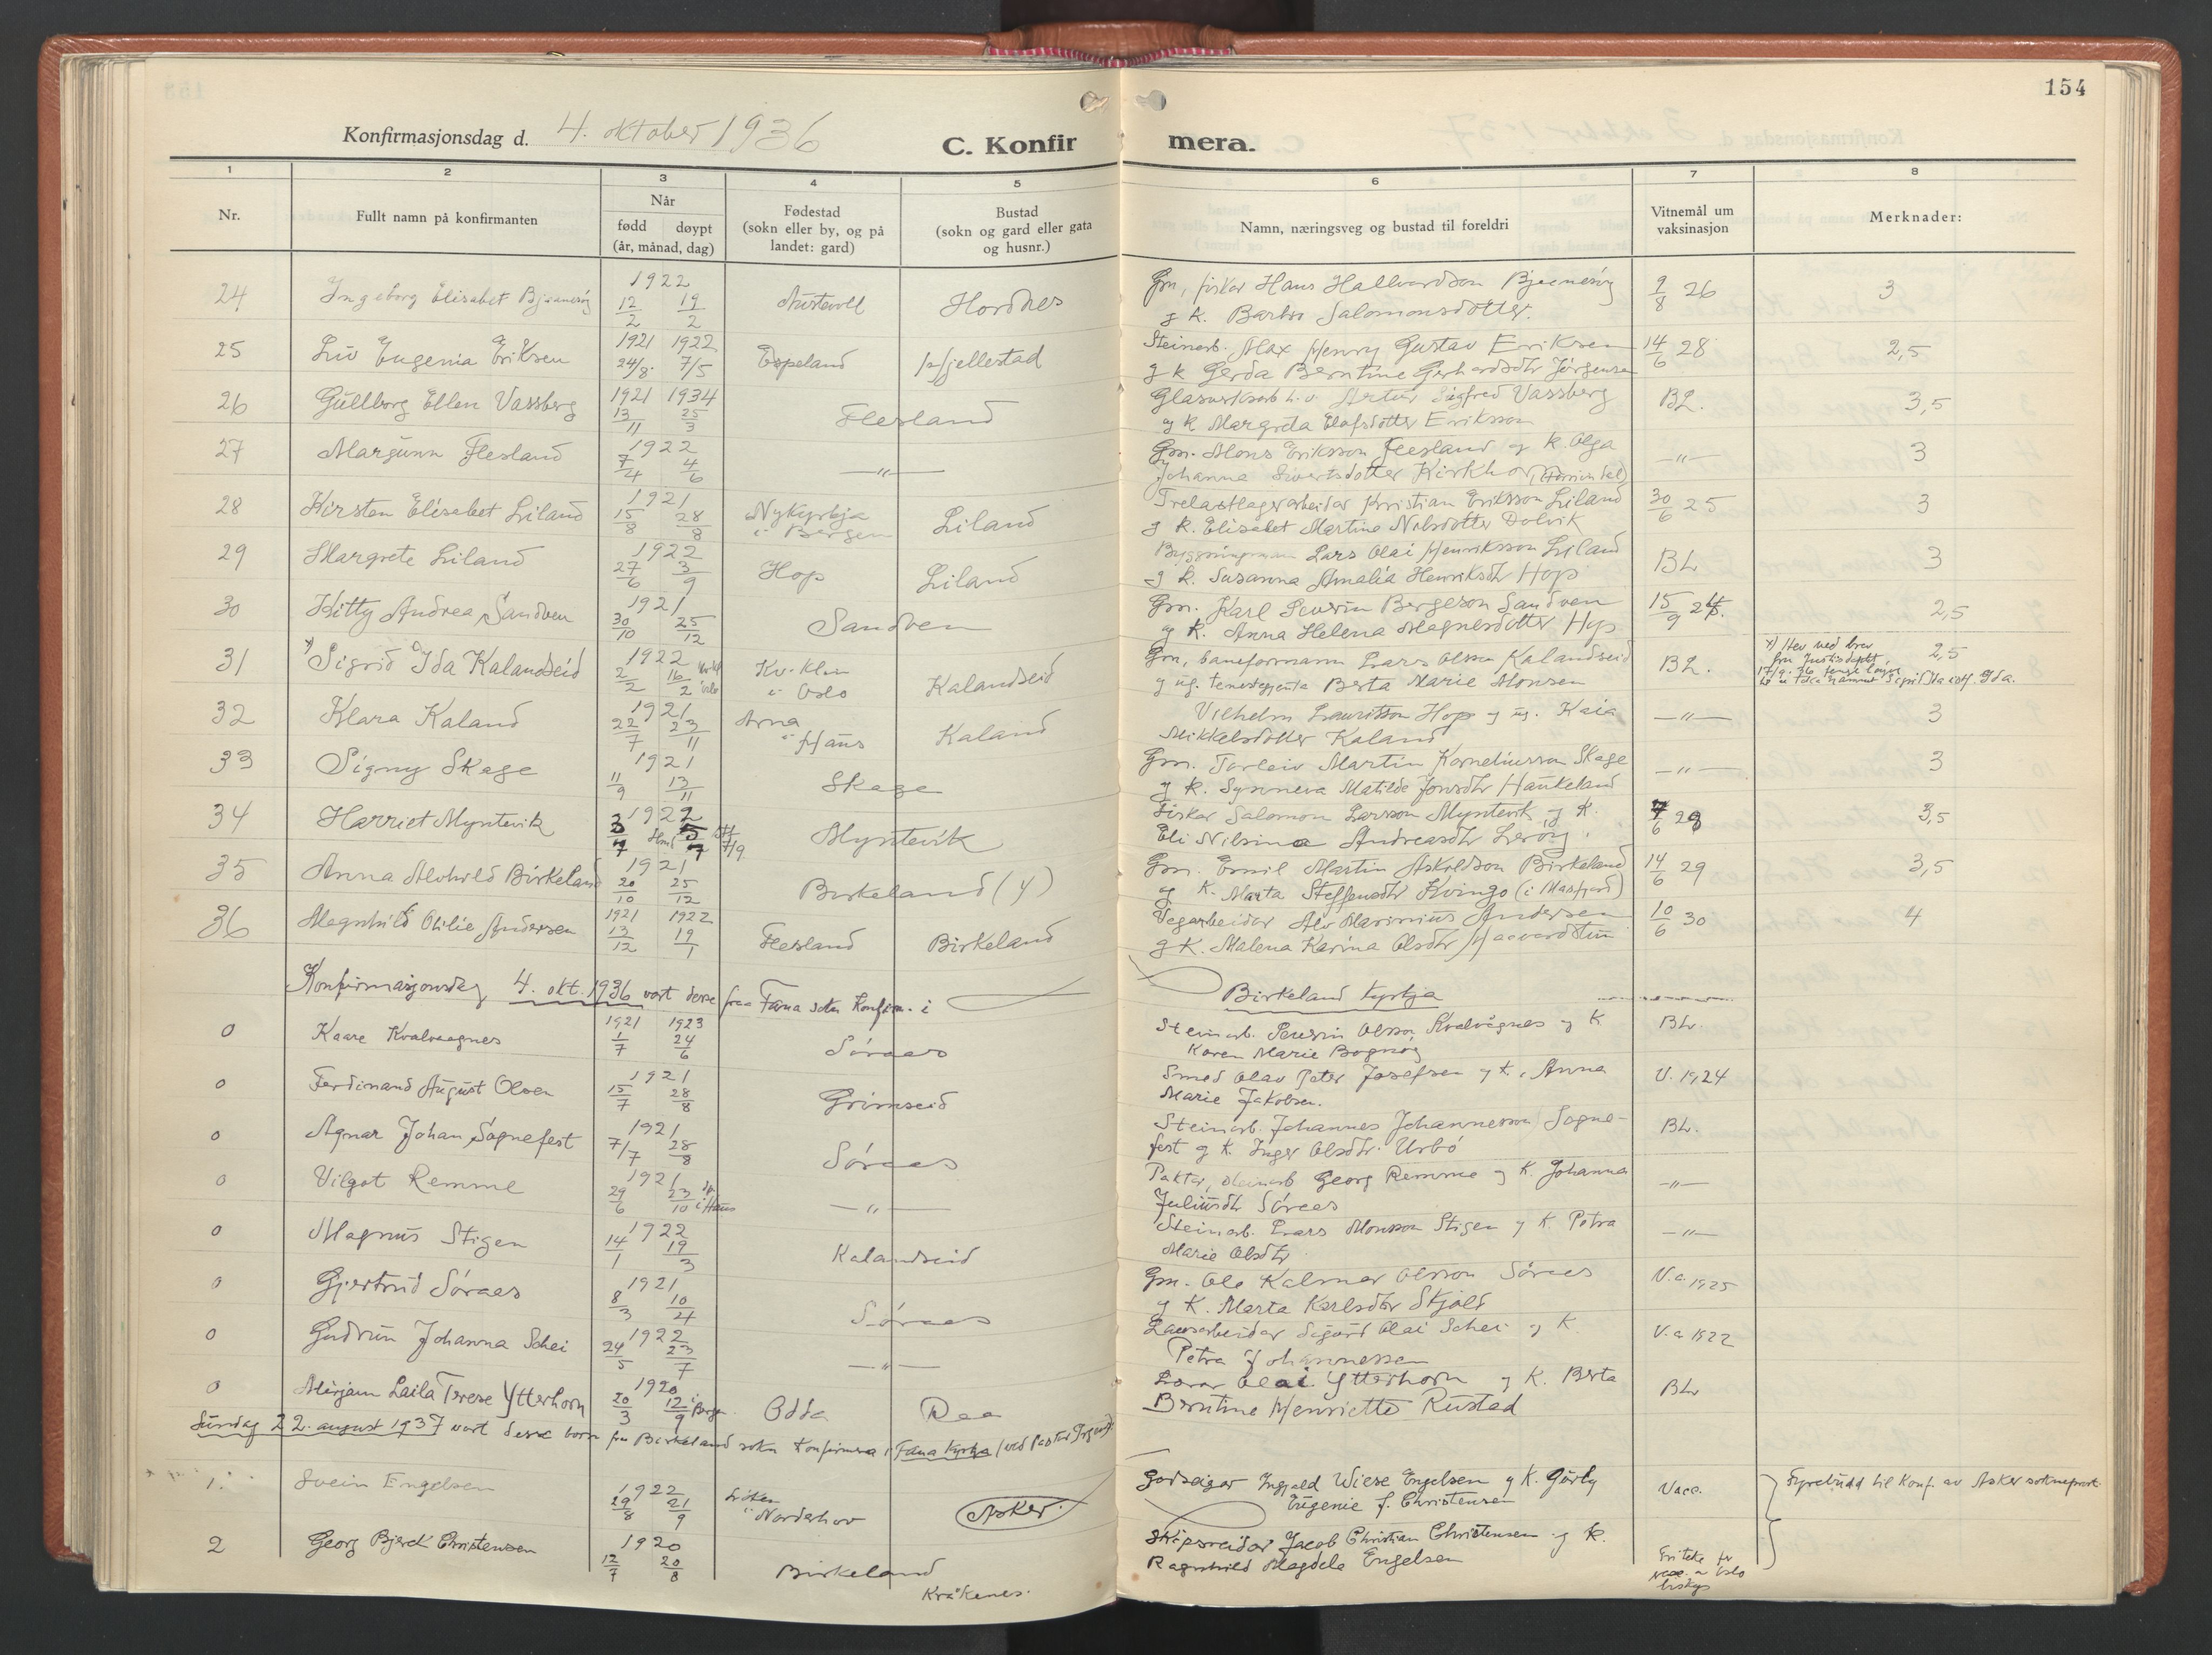 154
Konfirmasjonsdag d. 4. oktober 1936
C. Konfir mera.
1 2 3 4 5 6 7 8
Nr.
Fullt namn på konfirmanten
Når
født døypt
(år, månad, dag)
Fødestad
(sokn eller by, og på
landet: gard)
Bustad
(sokn og gard eller gata
og husnr.)
Namn, næringsveg og bustad til foreldri
Vitnemål um
vaksinasjon
Merknader:
24 Ingeborg Elisabet 1922 12/2 19/2 Austevoll Hordnes Gm, fiskar Hans Hallvardson 9/8 26 3
g k. Barbro Salomonsdotter.
25 Liv Eugenia Eriksen 1921 24/8 1922 7/5 Espeland Hjellestad Steinarb. Max Henry Gustav Eriksen 14/6 28 2,5
g k Gerda Berntine Gerhardsdtr Jørgensen
26 Gullborg Ellen Vassberg 1921 13/11 1934 25/3 Flesland Artur Sigfred Vassberg BL. 3,5
og k Margreta Elofsdotter Eriksson
27 Margunn Flesland 1922 7/4 4/6 —"— Gm. Mons Eriksson Flesland og k. Olga —"— 3
Johanna Sivertsdotter Kirkhor
28 Kirsten Elisabet Liland 1921 15/8 28/8 Nykyrkja i Bergen Liland Trelastlagerarbeidar Kristian Eriksson Liland 30/6 25 3
g k. Elisabet Martine Nilsdotter Dolvik
29 Margrete Liland 1922 27/6 3/9 Hop Liland Lars Olai Henriksson Liland BL 3
g k. Susanna Amalia Henriksdtr Hop
30 Kitty Andrea Sandven 1921 30/10 25/12 Sandven Gm. Karl Severin Bergeson Sandven 15/9 2,5
og k. Anna Helena Magnesdotter Hop
31 x) Sigrid Ida Kalandseid 1922 2/2 16/2 Kv. klin i Oslo Kalandseid Gm, baneformann Lars Olson Kalandseid BL. 2,5
g ug. tenestegjenta Berta Marie Monsen
x) Hev ved brev
fra Justisdept.
32 Klara Kaland 1921 22/7 23/11 Arna i Haus Kaland Vilhelm Lauritsson Hop g ug. Kaia —"— 3
Mikkelsdotter Kaland
33 Signy Skage 1921 11/9 13/11 Skage Gm. Torleiv Martin Korneliusson Skage —"— 3
g k. Synneva Matilde Jonsdtr Haukeland
34 Harriet Myntevik 1922 Myntevik Fiskar Salomon Larsson Myntevik g k. 3,5
Eli Nilsina Andreasdtr Lerøy.
35 Anna Alvhild Birkeland 1921 20/10 25/12 Birkeland (y) Gm. Emil Martin Askildson Birkeland 14/6 29 3,5
og k. Marta Steffensdtr Kvingo (i Masfjord)
36 Magnhild Otilie Andersen 1921 13/12 1922 19/1 Flesland Birkeland Vegarbeidar Alv Marinius Andersen 10/6 30 4
g k. Malena Karina Olsdtr
Konfirmasjonsdag 4. okt. 1936 vart desse fraa Fana sokn konfirm. i Birkeland kyrkja
0 Kaare Kvalvaagnes 1921 1/7 1923 24/6 Søraas Steinarb. Severin Olsson Kvalvågnes g k BL.
Karen Marie Bognøy
0 Ferdinand August Olsen 1921 15/7 28/8 Grimseid Smed Olav Peter Josefsen g k. Anna V. 1924
Marie Jakobsen.
0 Agnar Johan Sognefest 1921 7/7 28/8 Søraas Steinarb. Johannes Johannesson Sogne- BL.
fest g k. Inger Olsdtr. Urbø
0 Vilgot Remme 1921 29/6 23/10 i Haus —"— Georg Remme g k. Johanna —"—
Juliusdtr Søraas
0 Magnus Stigen 1922 14/1 19/3 Kalandseid Steinarb. Lars Monsson Stigen g k Petra —"—
Marie Olsdtr
0 Gjertrud Søraas 1921 8/3 10/4 Søraas Gm. Ole Kalmar Olsson Søraas V.a 1925
g k. Marta Karlsdtr Skjold
0 Gudrun Johanna Schei 1922 24/5 23/7 —"— Lausarbeidar Sigurd Olai Schei g k V.a 1922
Petra Johannessen
0 Mirjam Laila Terese Ytterhorn 1920 20/3 12/9 i Berg. Odda Raa Lærar Olai Ytterhorn g k. Berta BL
Berntine Henriette Rustad
Sundag 22. august 1937 vart desse born fra Birkeland sokn konfirmera i Fana kyrkja
1. Svein Engelsen 1922 29/8 21/9 i Norderhov Asker Godseigar Ingjald Wiese Engelsen g k. Gørly Vacc. Fyrebudd til konf. av Asker sokneprest
Eugenie f. Christensen
2 Georg Bjerck Christensen 1920 12/7 20/8 Birkeland Kråkenes. Skipsreidar Jacob Christian Christensen g k.
Ragnhild Magdele Engelsen